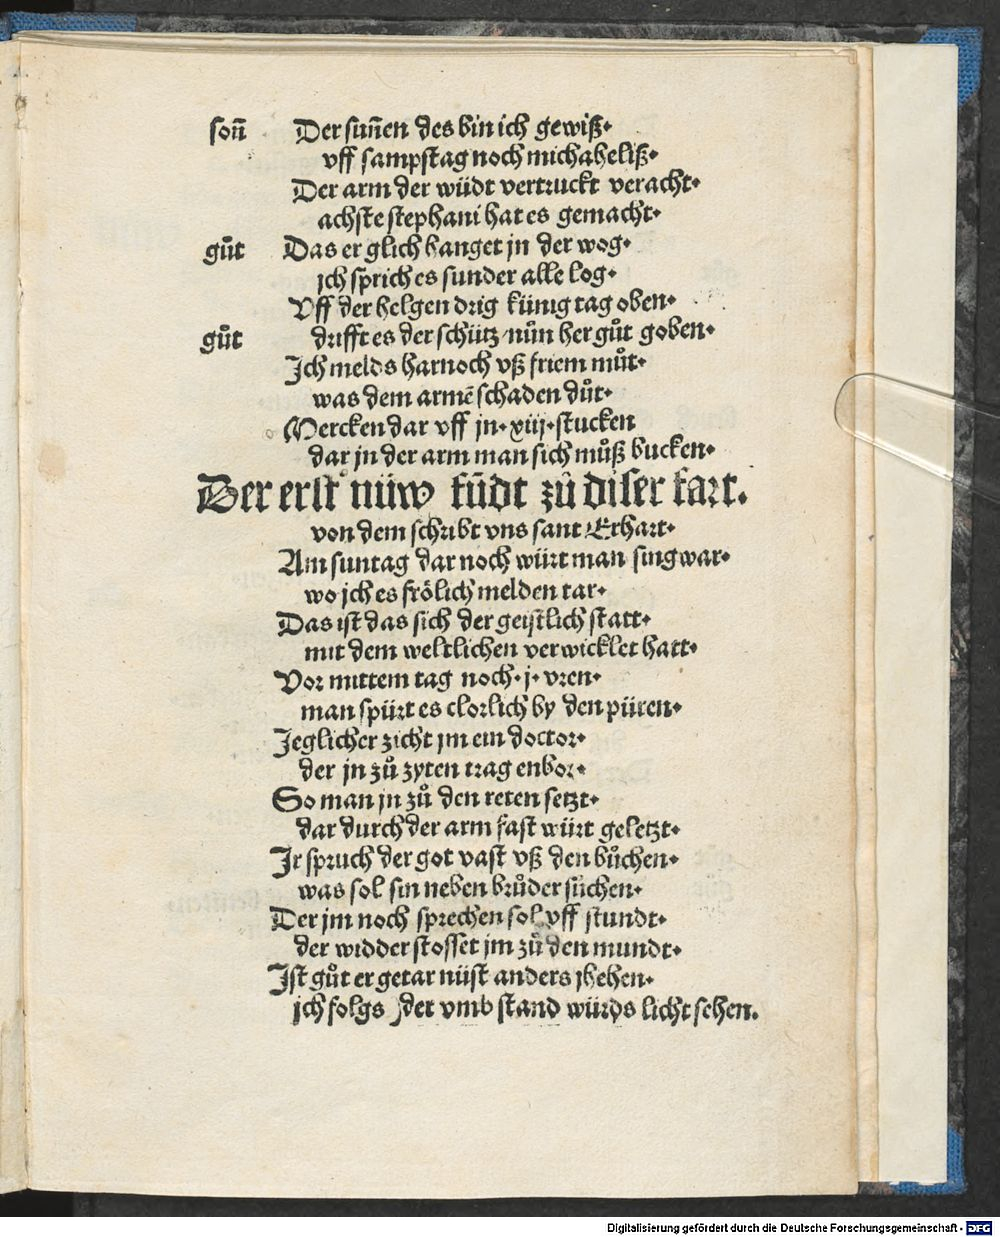 soñ Der suñen des bin ich gewiß·
vff sampstag noch michaheliß·
Der arm der würdt vertruckt veracht·
achste stephani hat es gemacht·
gůt Das er glich hanget jn der wog·
jch sprich es sunder alle log·
Vff der helgen drig künig tag oben·
gůt drifft es der schütz nůn her gůt goben·
Jch melds harnoch vß friem můt·
was dem armē schaden důt·
Mercken dar vff jn·xiij·stucken
dar jn der arm man sich můß bucken·
Der erst nüw fündt zů diser fart.
von dem schribt vns sant Erhart·
Am suntag dar noch würt man sing war·
wo jch es frölich melden tar·
Das ist das sich der geistlich statt·
mit dem weltlichen verwicklet hatt·
Vor mittem tag noch·j·vren·
man spürt es clorlich by den püren·
Jeglicher zicht jm ein doctor·
der jn zů zyten trag enbor·
So man jn zů den reten setzt·
dar durch der arm fast würt geletzt·
Jr spruch der got vast vß den bůchen·
was sol sin neben brůder süchen·
Der jm noch sprechen sol vff stundt·
der widder stosset jm zů den mundt·
Jst gůt er getar nüst anders jhehen·
jch folgs der vmb stand würds licht sehen.
Digitalisierung gefördert durch die Deutsche Forschungsgemeinschaft - DFG